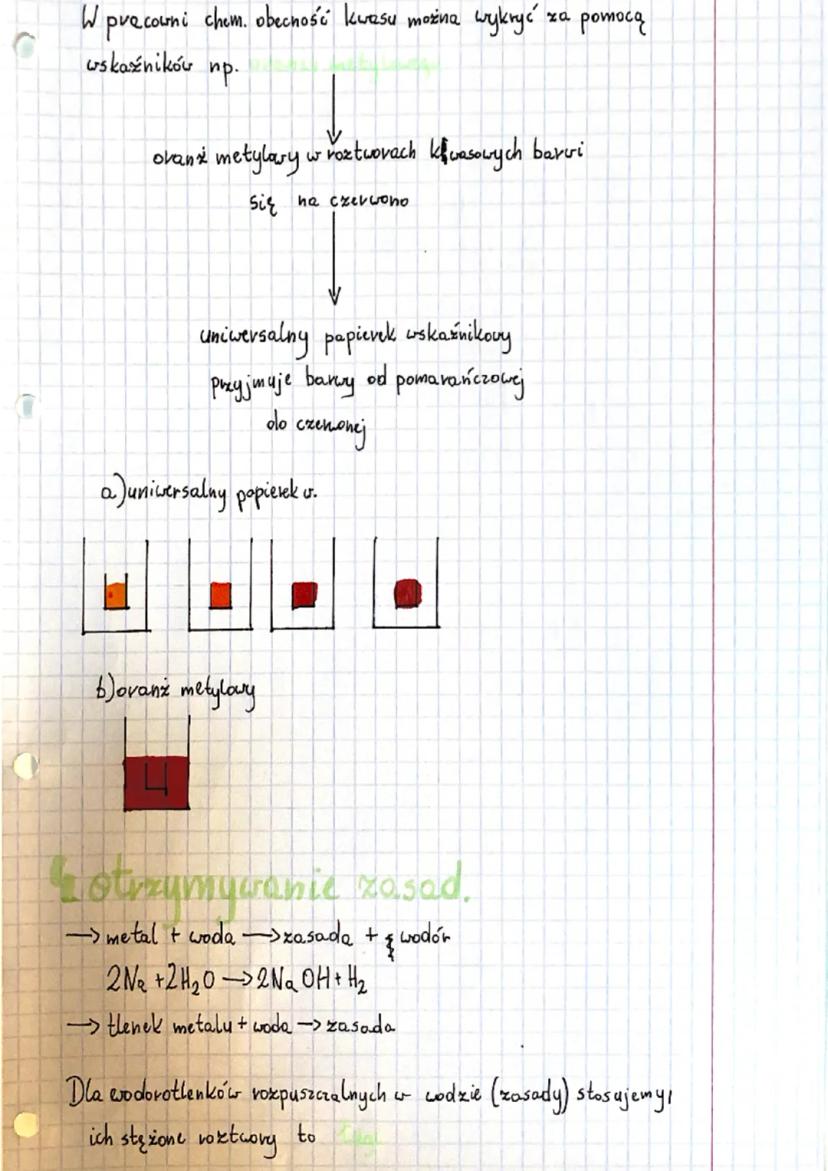 W pracowni chem. obecność kwasu można wykryć za pomocą
wskaźników np. oranżu metylowego
oranż metylowy w roztworach kwasowych barwi
się na czerwono
uniwersalny papierek wskaźnikowy
przyjmuje barwy od pomarańczowej
do czerwonej
a) uniwersalny papierek w.
b) oranż metylowy
otrzymywanie zasad.
→ metal + woda → zasada + wodór
2Na + 2H₂O → 2NaOH + H₂
→ tlenek metalu + woda → zasada
Dla wodorotlenków rozpuszczalnych w wodzie (zasady) stosujemy,
ich stężone roztwory to ługi